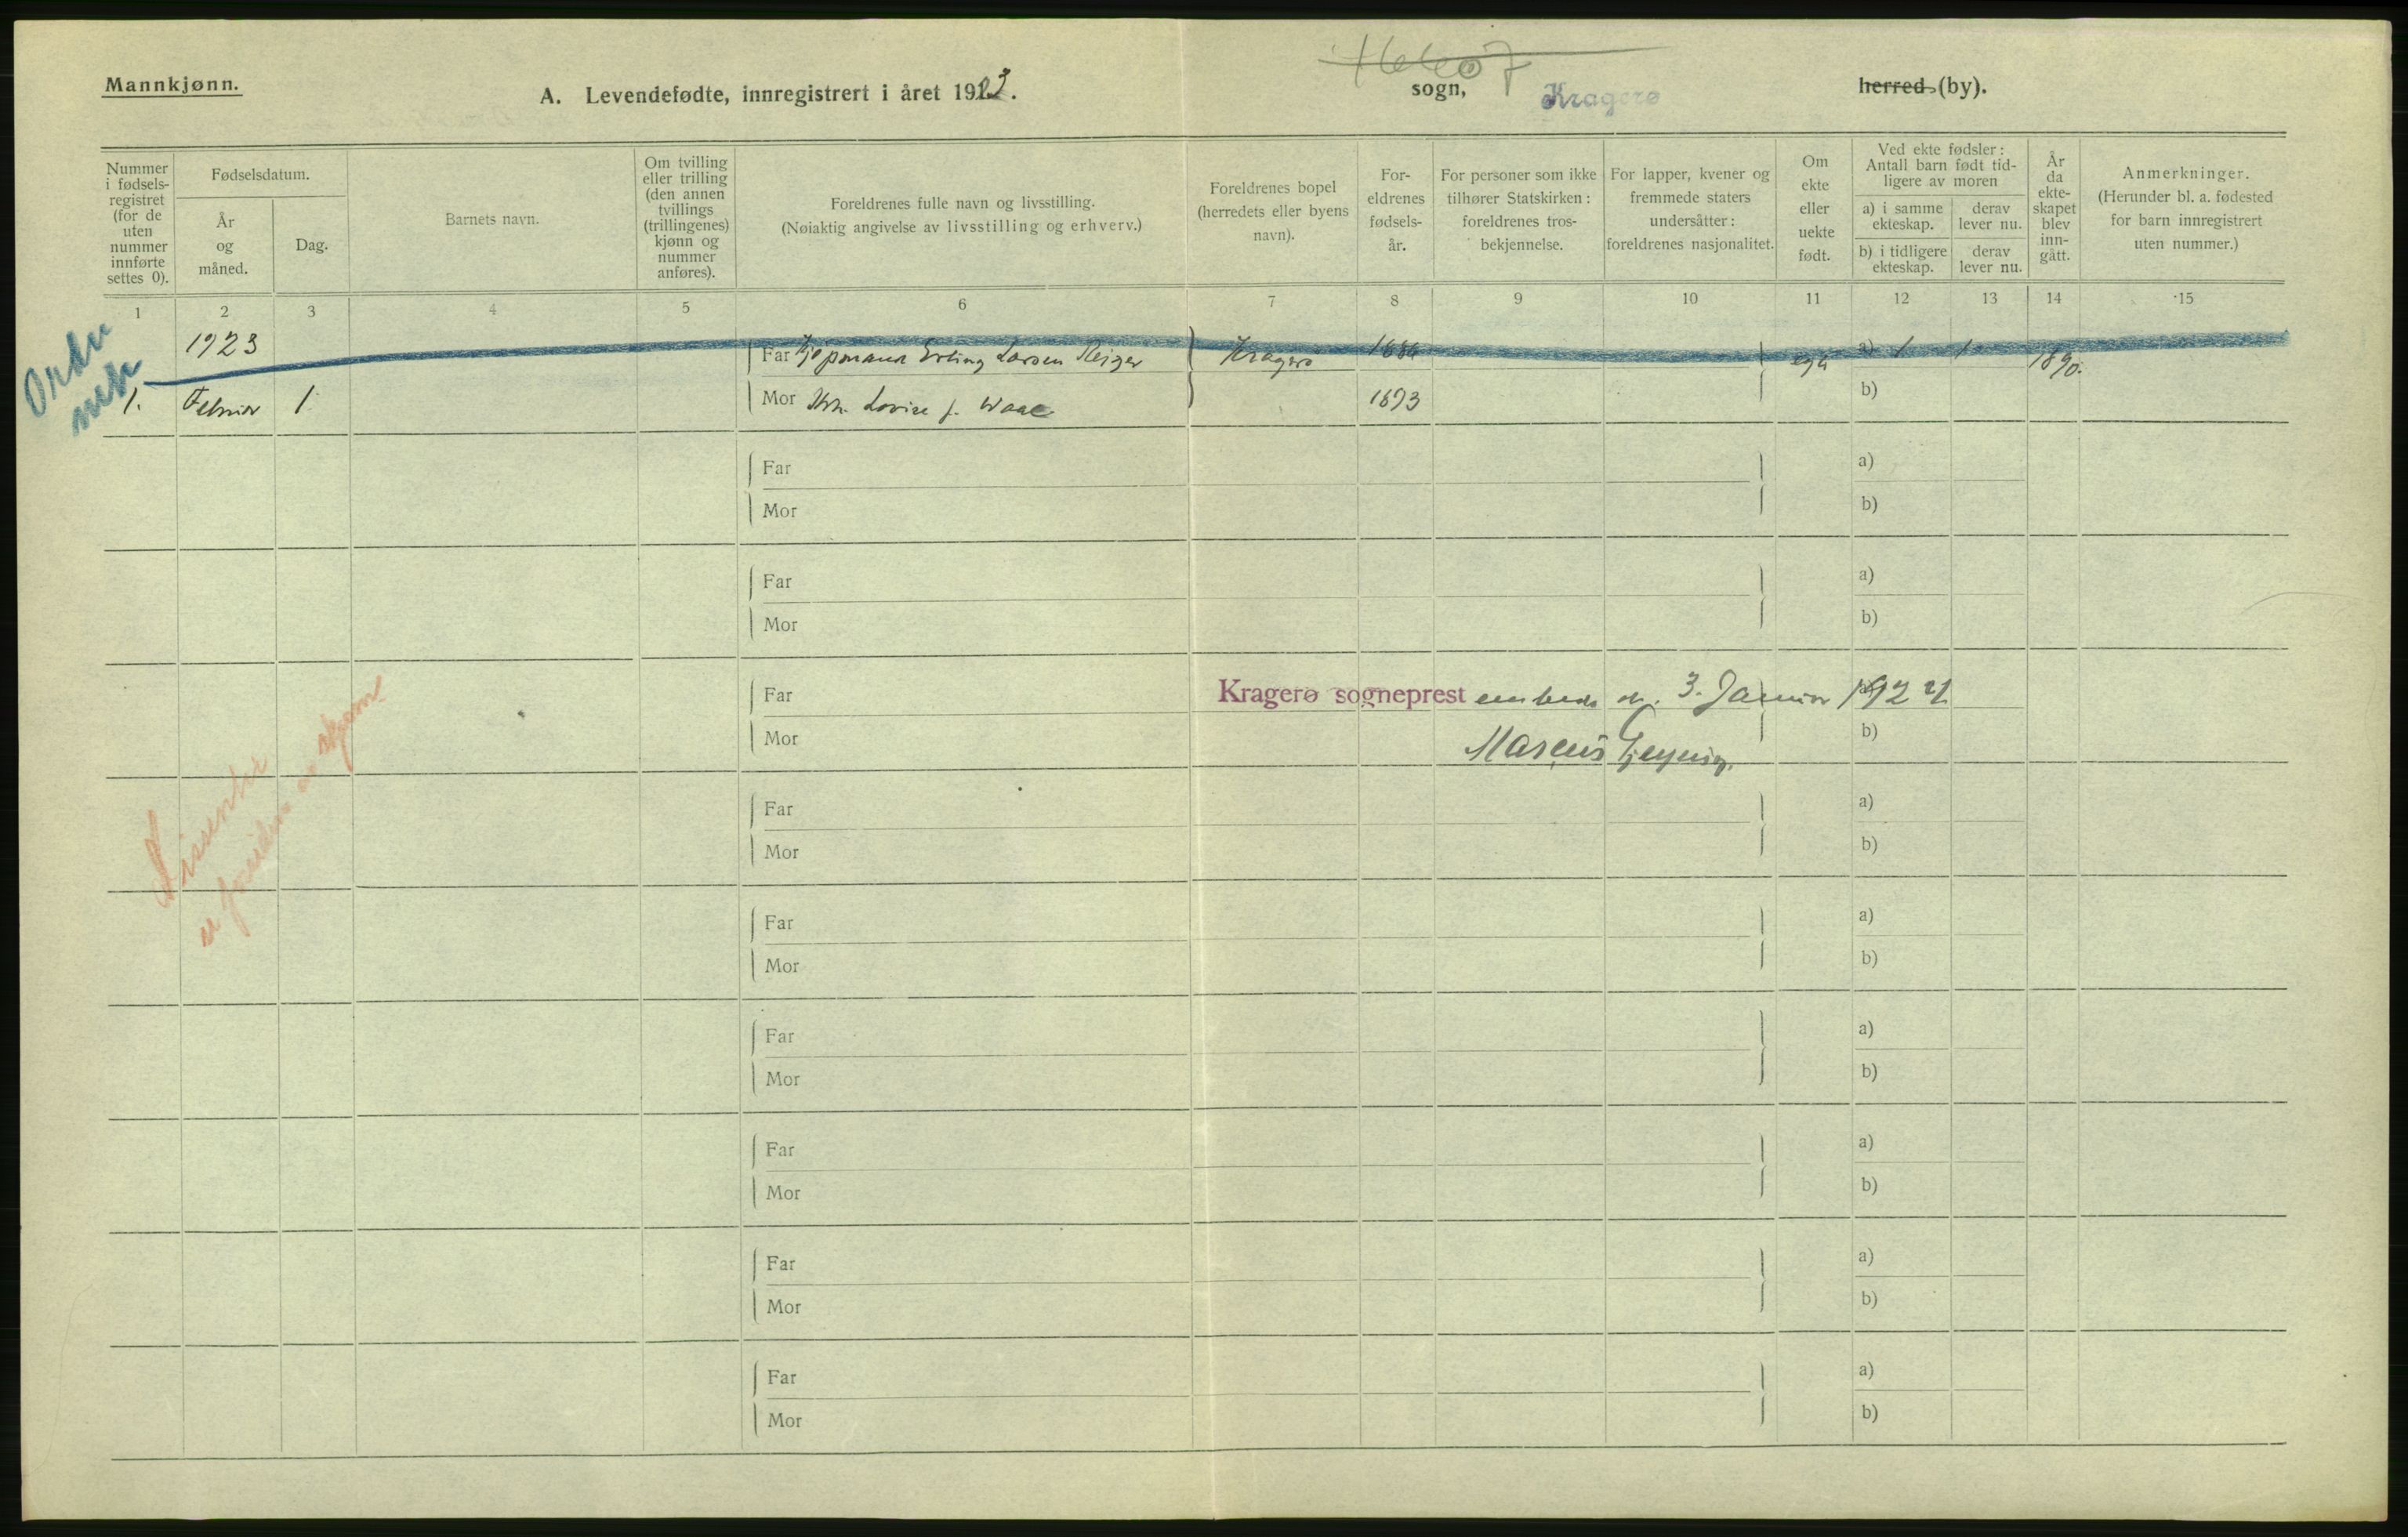 Mannkjønn.
A. Levendefødte, innregistrert i året 1923.
sogn, Kragerø herred (by).
Nummer i fødsels-registret (for de uten nummer innførte settes 0).
Fødselsdatum.
År og måned.
Dag.
Barnets navn.
Om tvilling eller trilling (den annen tvillings (trillingenes) kjønn og nummer anføres).
Foreldrenes fulle navn og livsstilling.
(Nøiaktig angivelse av livsstilling og erhverv.)
Foreldrenes bopel (herredets eller byens navn).
For-eldrenes fødsels-år.
For personer som ikke tilhører Statskirken: foreldrenes tros-bekjennelse.
For lapper, kvener og fremmede staters undersåtter: foreldrenes nasjonalitet.
Om ekte eller uekte født.
Ved ekte fødsler: Antall barn født tid-ligere av moren
a) i samme ekteskap.
derav lever nu.
b) i tidligere ekteskap.
derav lever nu.
År da ekte-skapet blev inn-gått.
Anmerkninger.
(Herunder bl. a. fødested for barn innregistrert uten nummer.)
1 2 3 4 5 6 7 8 9 10 11 12 13 14 15
1923
Far Kjøpmand Erling Larsen Kragerø 1886 a) 1 1
1. Februar 1 Mor Lovise f. 1893 b)
Far a)
Mor b)
Far a)
Mor b)
Far Kragerø sogneprest embede d. 3. Januar 1924 a)
Mor Marcus b)
Far a)
Mor b)
Far a)
Mor b)
Far a)
Mor b)
Far a)
Mor b)
Far a)
Mor b)
Far a)
Mor b)